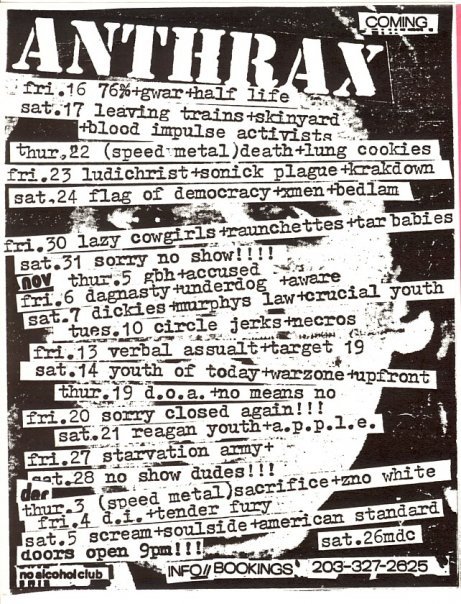 COMING
ANTHRAX
fri.16 76%+gwar+half life
sat.17 leaving trains+skinyard
+blood impulse activists
thur.22 (speed metal)death+lung cookies
fri.23 ludichrist+sonick plague+krakdown
sat.24 flag of democracy+xmen+bedlam
fri.30 lazy cowgirls+raunchettes+tar babies
sat.31 sorry no show!!!!
nov thur.5 gbh+accused
fri.6 dagnasty+underdog +aware
sat.7 dickies+murphys law+crucial youth
tues.10 circle jerks+necros
fri.13 verbal assualt+target 19
sat.14 youth of today+warzone+upfront
thur.19 d.o.a.+no means no
fri.20 sorry closed again!!!
sat.21 reagan youth+a.p.p.l.e.
fri.27 starvation army+
sat.28 no show dudes!!!
dec
thur.3 (speed metal)sacrifice+zno white
fri.4 d.i.+tender fury
sat.5 scream+soulside+american standard
doors open 9pm!!! sat.26mdc
no alcohol club INFO// BOOKINGS 203-327-2625